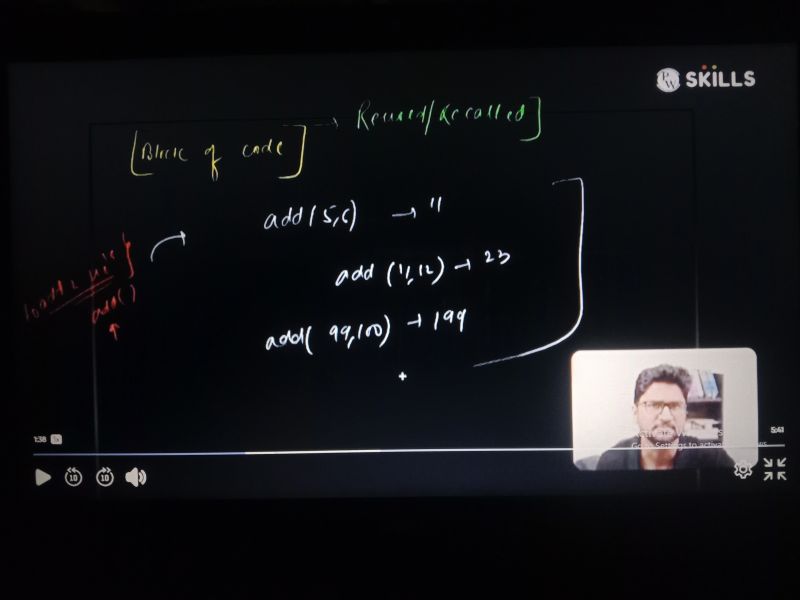 PW SKILLS
[Block of code] → Reused/Recalled]
add(5,6) → 11
add (11,12) → 23
add()
add( 99,100) → 199
1:38
5:41
Go to Settings to activate
10 10